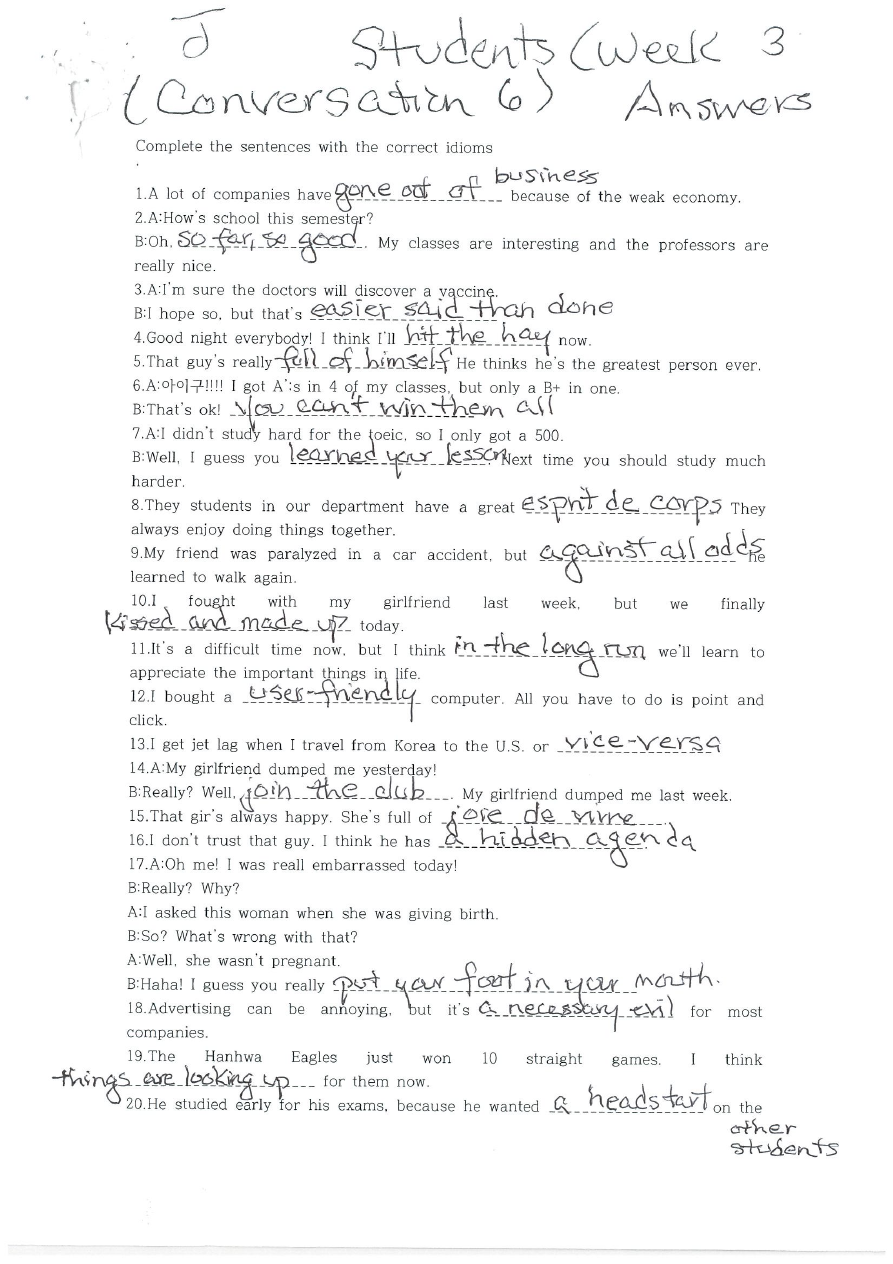 J Students (Week 3
(Conversation 6) Answers
Complete the sentences with the correct idioms
1.A lot of companies have gone out of business because of the weak economy.
2.A:How's school this semester?
B:Oh, so far, so good. My classes are interesting and the professors are
really nice.
3.A:I'm sure the doctors will discover a vaccine.
B:I hope so, but that's easier said than done
4.Good night everybody! I think I'll hit the hay now.
5.That guy's really full of himself He thinks he's the greatest person ever.
6.A:아이구!!!! I got A';s in 4 of my classes, but only a B+ in one.
B:That's ok! You can't win them all
7.A:I didn't study hard for the toeic, so I only got a 500.
B:Well, I guess you learned your lesson. Next time you should study much
harder.
8.They students in our department have a great esprit de corps They
always enjoy doing things together.
9.My friend was paralyzed in a car accident, but against all odds he
learned to walk again.
10.I fought with my girlfriend last week, but we finally
kissed and made up today.
11.It's a difficult time now, but I think in the long run we'll learn to
appreciate the important things in life.
12.I bought a user-friendly computer. All you have to do is point and
click.
13.I get jet lag when I travel from Korea to the U.S. or vice-versa
14.A:My girlfriend dumped me yesterday!
B:Really? Well, join the club. My girlfriend dumped me last week.
15.That gir's always happy. She's full of joie de vivre.
16.I don't trust that guy. I think he has a hidden agenda
17.A:Oh me! I was reall embarrassed today!
B:Really? Why?
A:I asked this woman when she was giving birth.
B:So? What's wrong with that?
A:Well, she wasn't pregnant.
B:Haha! I guess you really put your foot in your mouth.
18.Advertising can be annoying, but it's a necessary evil for most
companies.
19.The Hanhwa Eagles just won 10 straight games. I think
things are looking up for them now.
20.He studied early for his exams, because he wanted a headstart on the
other
students